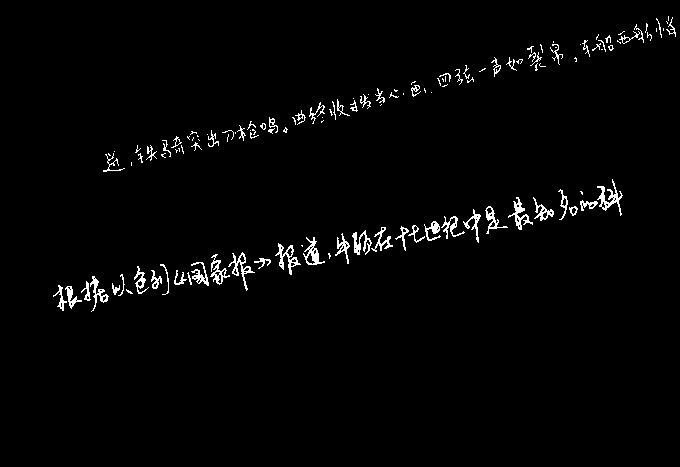 迸,铁骑突出刀枪鸣。曲终收拨当心画,四弦一声如裂帛,东船西舫悄
根据以色列《国家报》报道,牛顿在十七世纪中是最知名的科